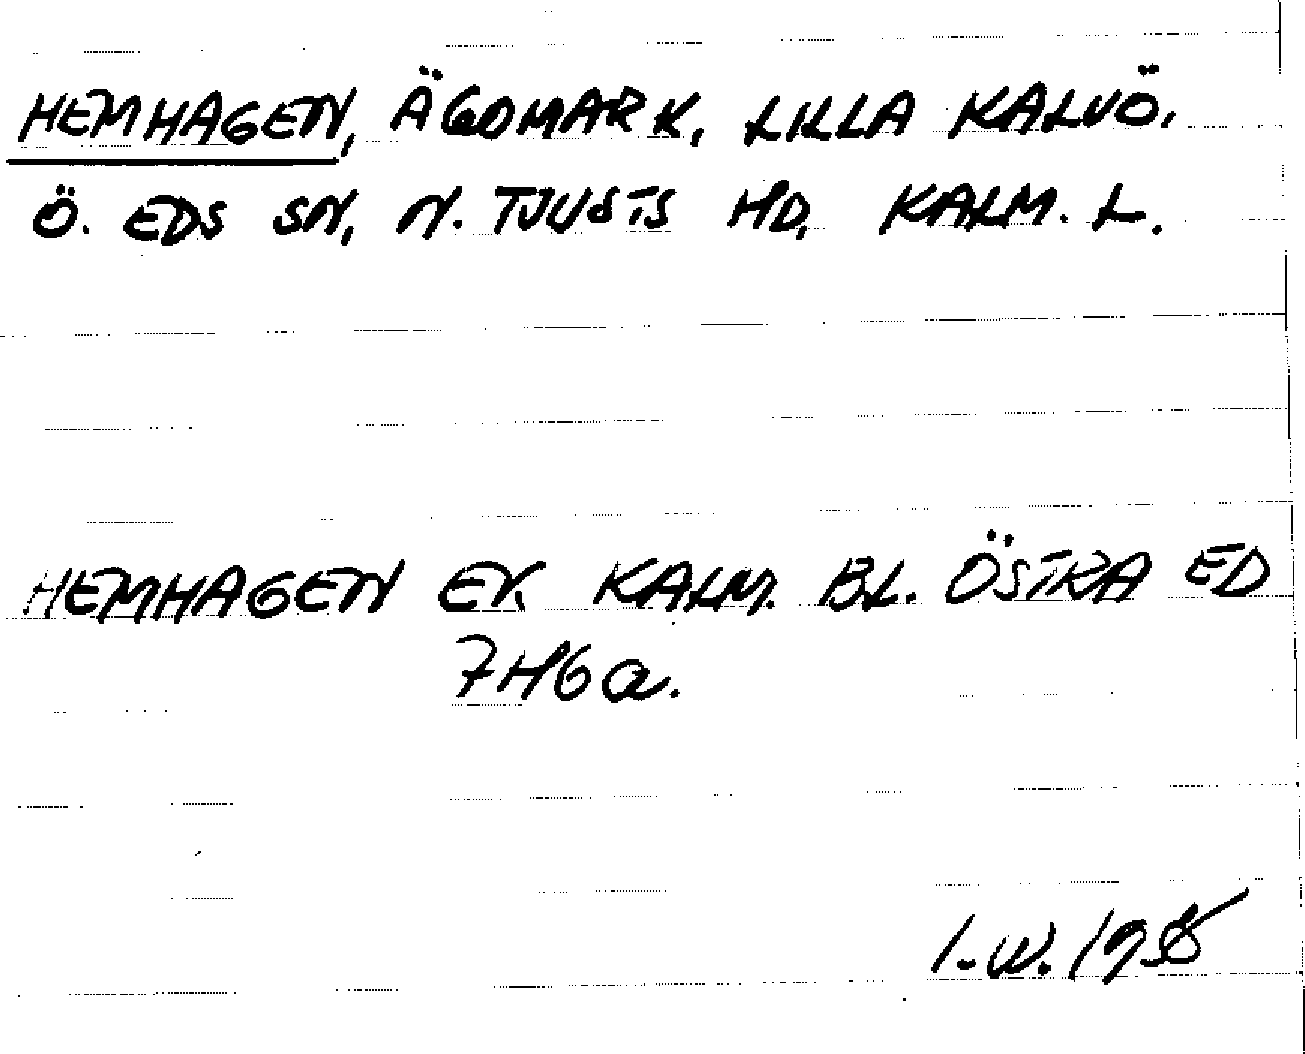 HEMHAGEN, ÄGOMARK, LILLA KALVÖ.
Ö. EDS SN, N. TJUSTS HD, KALM. L.
HEMHAGEN EK KALM. BL. ÖSTRA ED
7H6a.
I.W.